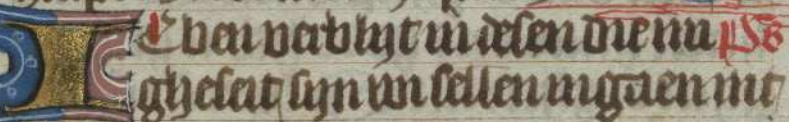 IC ben verblijt in desen die mi ps
gheseit sijn wi sellen ingaen int